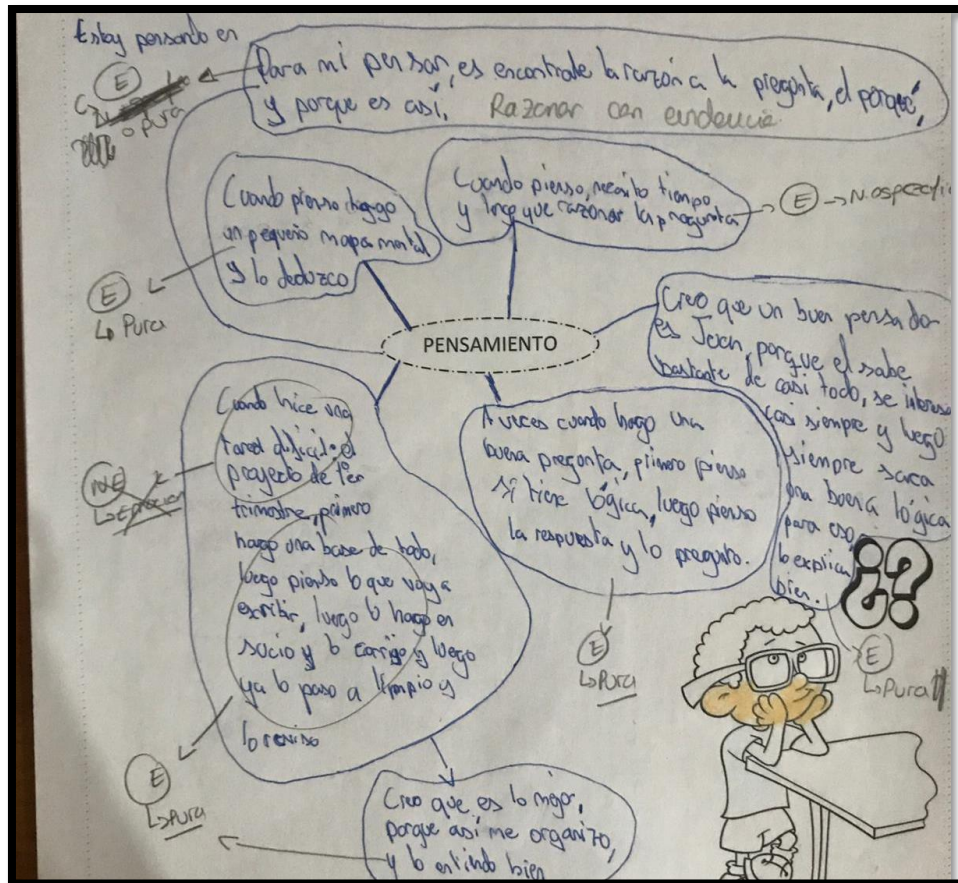 Estoy pensando en
E
o pura
Para mi pensar, es encontrale la razón a la pregunta, el porqué,
y porque es así. Razonar con evidencia
Cuando pienso
un pequeño mapa mental
y lo deduzco
E
Pura
Cuando pienso, necesito tiempo
y tengo que razonar la pregunta
E
PENSAMIENTO
Creo que un buen pensador
es Joan, porque el sabe
bastante de casi todo, se interesa
casi siempre y luego
siempre saca
una buena lógica
para eso,
lo explica
bien.
¿?
E
Pura
Cuando hice una
tarea dificil: el
proyecto de 1er
trimestre, primero
hago una base de todo,
luego pienso lo que voy a
escribir, luego lo hago en
sucio y lo corrijo y luego
ya lo paso a limpio y
lo reviso
E
Pura
A veces cuando hago una
buena pregunta, primero pienso
si tiene lógica, luego pienso
la respuesta y lo pregunto.
E
Pura
Creo que es lo mejor,
porque así me organizo,
y lo entindo bien